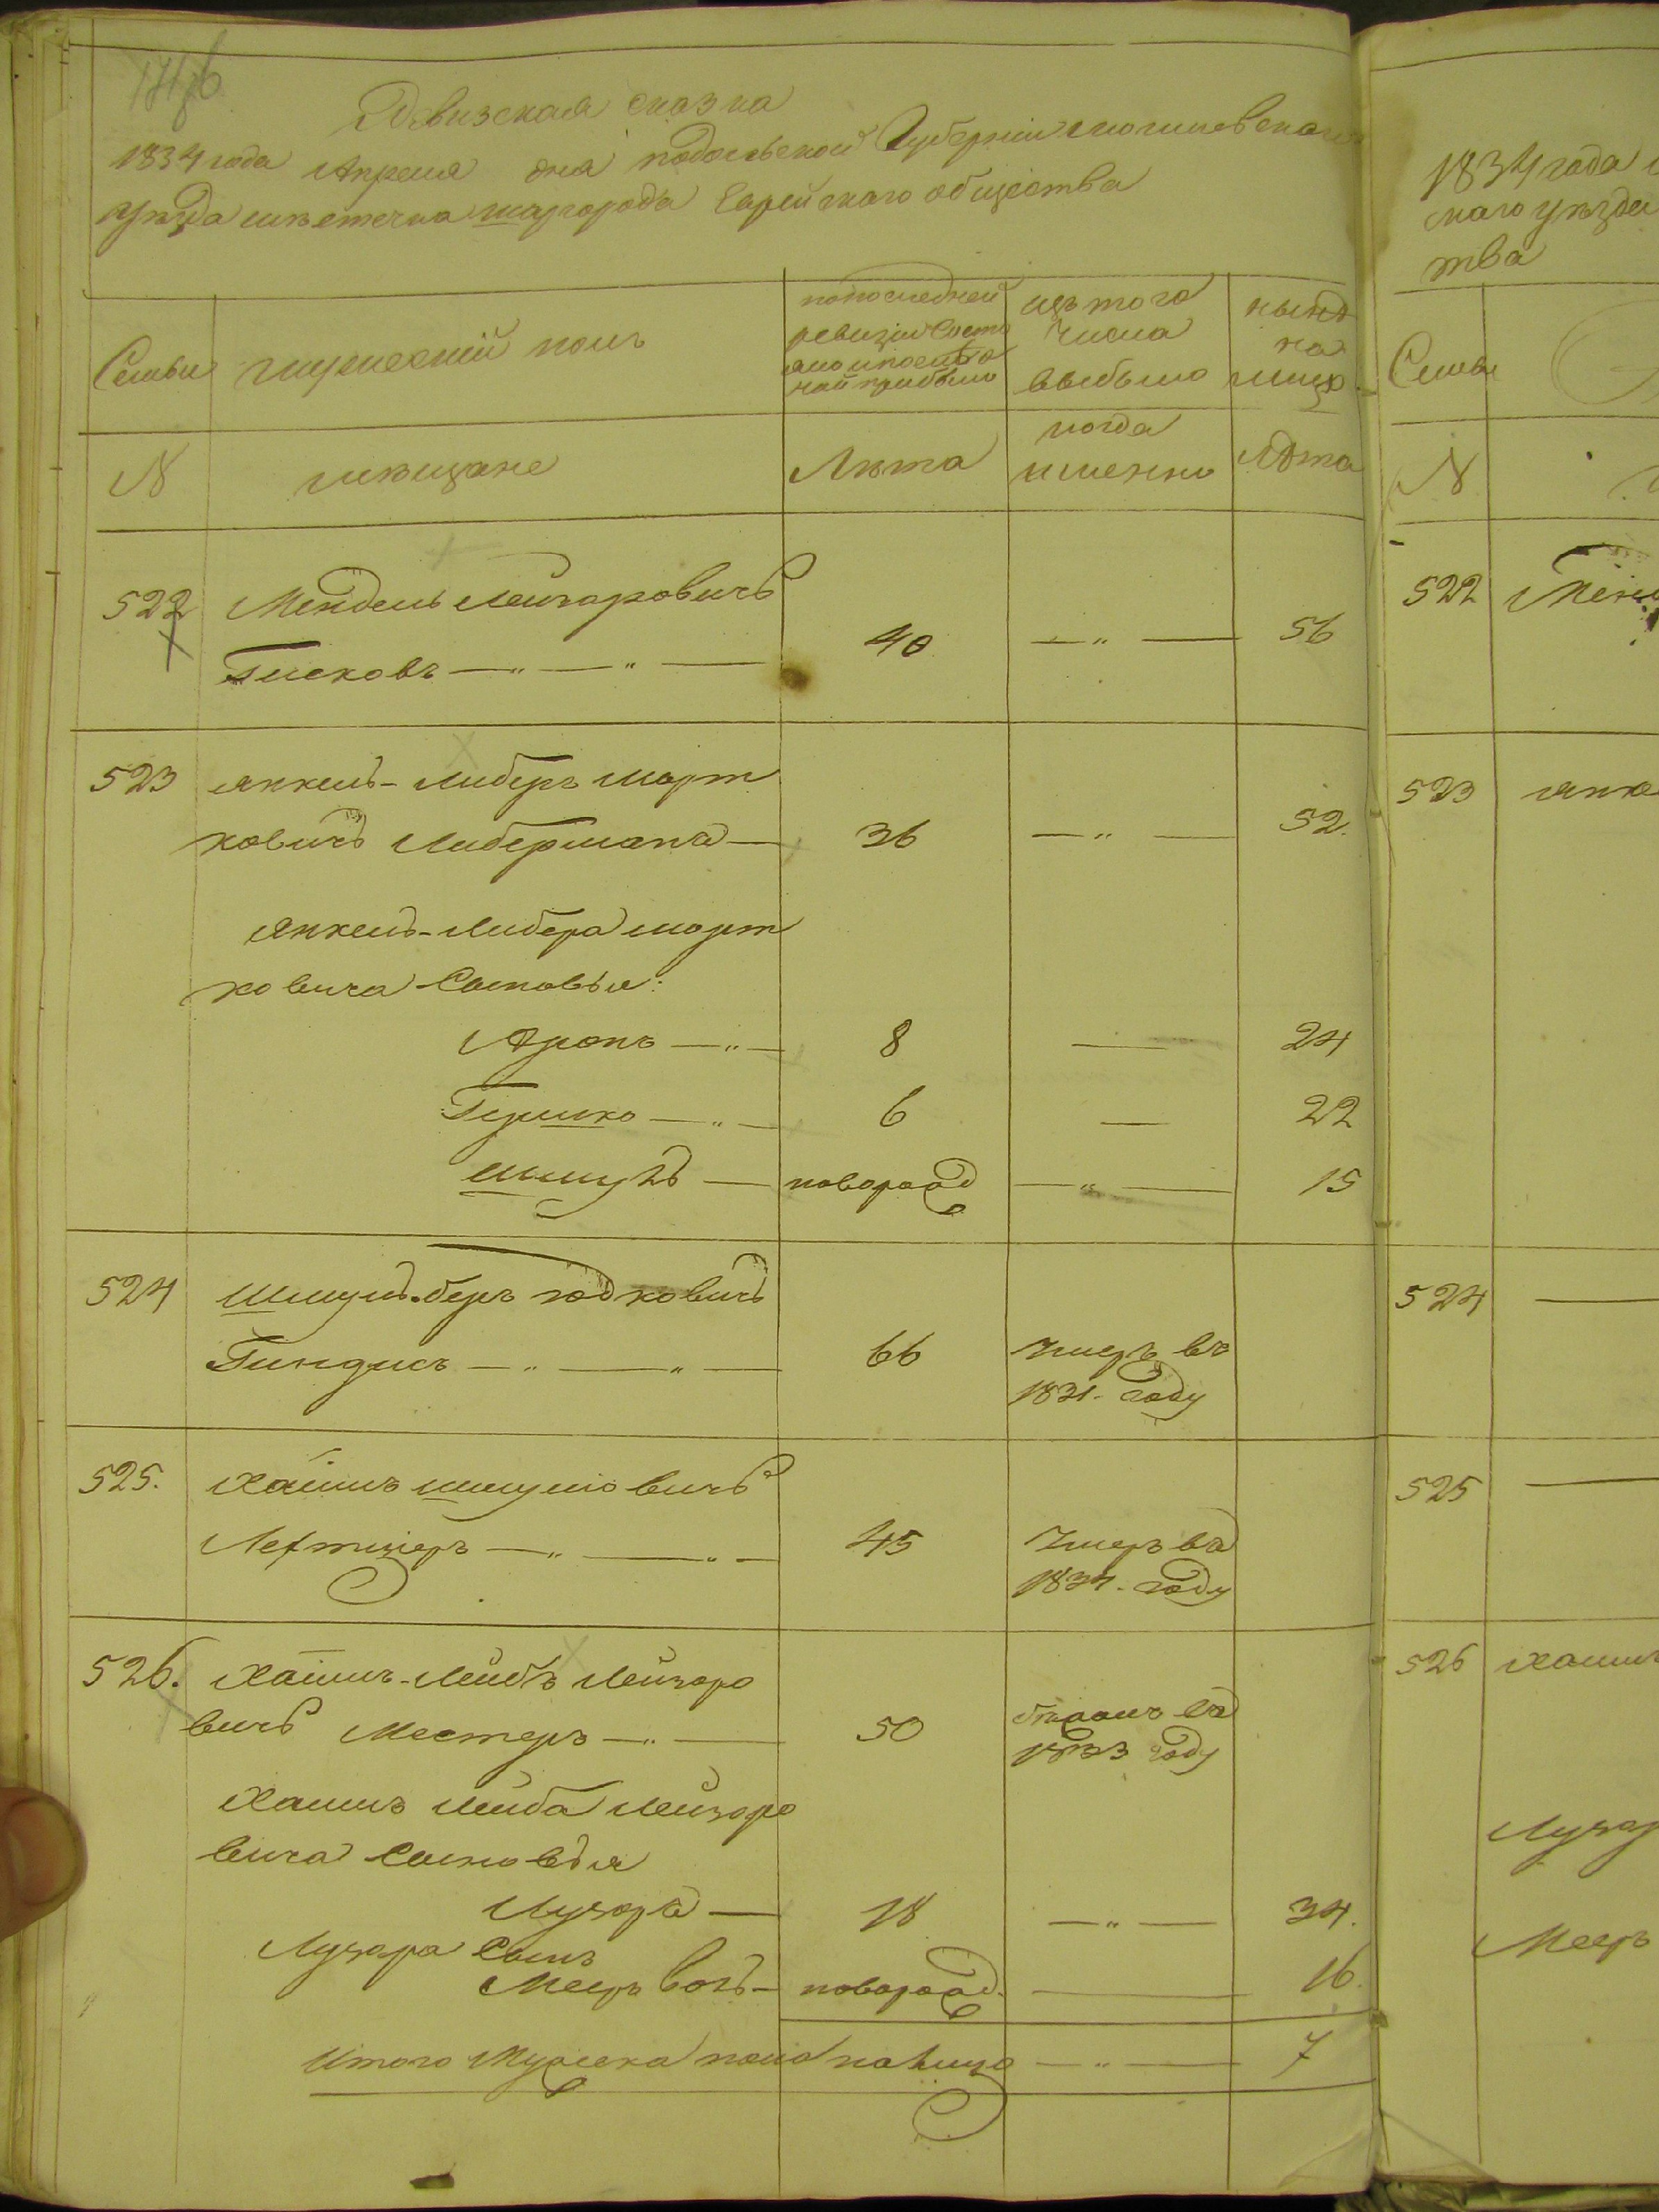 Ревизская сказка
1834 года Апреля дня Подольской Губернии Могилевского
уезда местечка Шаргорода Еврейского общества
Семьи
мужеский полъ
по последней
ревизии состо
яло и после о
ной прибыло
изъ того
числа
выбыло
ныне
на
лицо
N
мещане
Лета
когда
именно
Лета
522
Мендель Лейзаровичъ
40
—„—
56
523
Янкель-Либеръ Морт
ковичъ Либерманъ —
36
—„—
52.
Янкель-Либера Морт
ковича Сыновья:
Аронъ —„—
8
—
24
Гершко —„—
6
—
22
Шмуль —
новорожд
—„—
15
524
Шмуль-беръ
66
Умеръ въ
1831. году
525.
Хаимъ Шмулiовичъ
45
Умеръ въ
1834. году
526.
Хаимъ-Лейбъ Лейзоро
вичъ Местеръ —„—
50
въ
1833 году
Хаимъ Лейба Лейзоро
вича Сыновья
Лузоръ —
18
—„—
34.
Лузора Сынъ
Мееръ Волъ —
новорожд.
—
16.
Итого Мужеска пола на лицо —„—
7
1834 года
скаго уезда
тва
Семьи
N
522
523
Янке
524
—
525
—
526
Хаимъ
Лузор
Мееръ